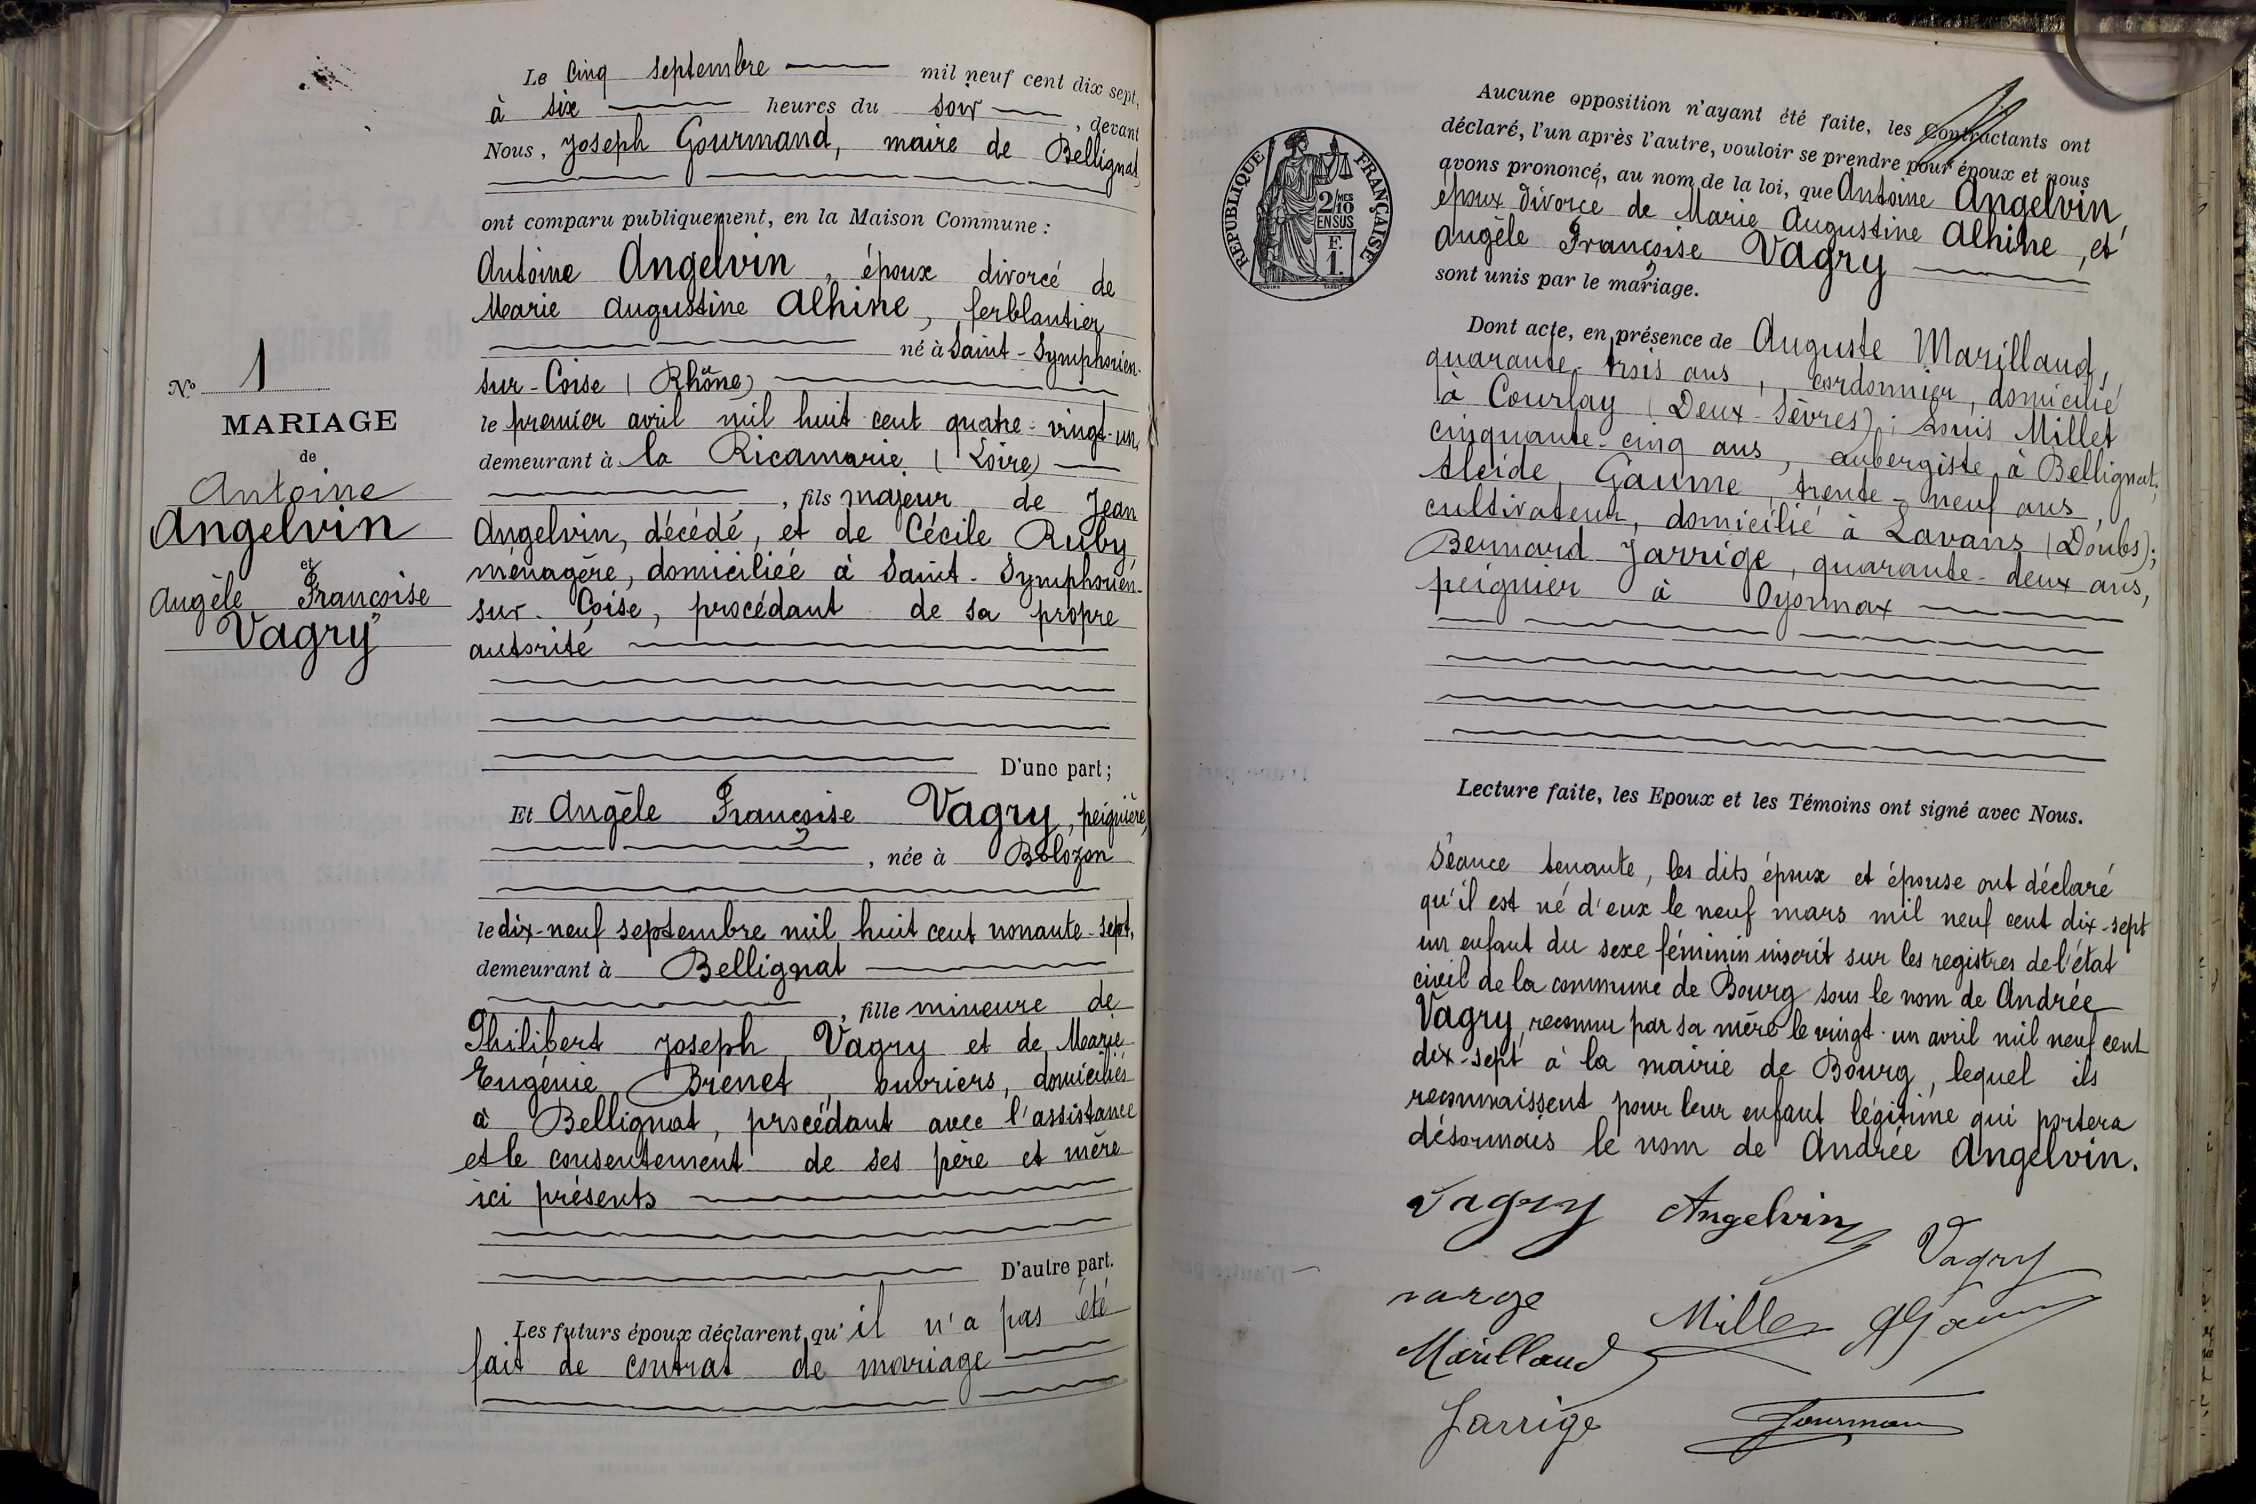 Le cinq septembre mil neuf cent dix sept,
à six heures du soir, devant
Nous, Joseph Gourmand, maire de Bellignat,
ont comparu publiquement, en la Maison Commune :
Antoine Angelvin, époux divorcé de
Marie Augustine Alhine, ferblantier
né à Saint-Symphorien-
sur-Coise (Rhône)
le premier avril mil huit cent quatre-vingt-un,
demeurant à la Ricamarie (Loire)
, fils majeur de Jean
Angelvin, décédé, et de Cécile Ruby,
ménagère, domiciliée à Saint-Symphorien-
sur-Coise, procédant de sa propre
autorité
D'une part;
Et Angèle Françoise Vagry, peignière,
, née à Bolozon
le dix-neuf septembre mil huit cent nonante-sept,
demeurant à Bellignat
, fille mineure de
Philibert Joseph Vagry et de Marie
Eugénie Brenet, ouvriers, domiciliés
à Bellignat, procédant avec l'assistance
et le consentement de ses père et mère
ici présents
D'autre part.
Les futurs époux déclarent qu'il n'a pas été
fait de contrat de mariage
N° 1
MARIAGE
de
Antoine
Angelvin
et
Angèle Françoise
Vagry
RÉPUBLIQUE FRANÇAISE
2/10 MES
EN SUS
F.
1.
Aucune opposition n'ayant été faite, les contractants ont
déclaré, l'un après l'autre, vouloir se prendre pour époux et nous
avons prononcé, au nom de la loi, que Antoine Angelvin,
époux divorcé de Marie Augustine Alhine, et
Angèle Françoise Vagry
sont unis par le mariage.
Dont acte, en présence de Auguste Marillaud,
quarante-trois ans, cordonnier, domicilié
à Courlay (Deux-Sèvres); Louis Millet
cinquante-cinq ans, aubergiste à Bellignat;
Alcide Gaume, trente-neuf ans,
cultivateur, domicilié à Lavans (Doubs);
Bernard Jarrige, quarante-deux ans,
peignier à Oyonnax
Lecture faite, les Epoux et les Témoins ont signé avec Nous.
Séance tenante, les dits époux et épouse ont déclaré
qu'il est né d'eux le neuf mars mil neuf cent dix-sept
un enfant du sexe féminin inscrit sur les registres de l'état
civil de la commune de Bourg sous le nom de Andrée
Vagry reconnu par sa mère le vingt-un avril mil neuf cent
dix-sept à la mairie de Bourg, lequel ils
reconnaissent pour leur enfant légitime qui portera
désormais le nom de Andrée Angelvin.
Vagry Angelvin
Vagry
Millet
Marillaud
Jarrige